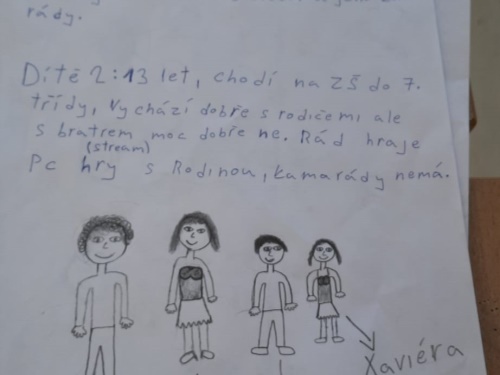 rády.
Dítě 2: 13 let, chodí na ZŠ do 7.
třídy, Vychází dobře s rodičemi ale
s bratrem moc dobře ne. Rád hraje
(stream)
Pc hry s Rodinou, kamarády nemá.
Xaviéra